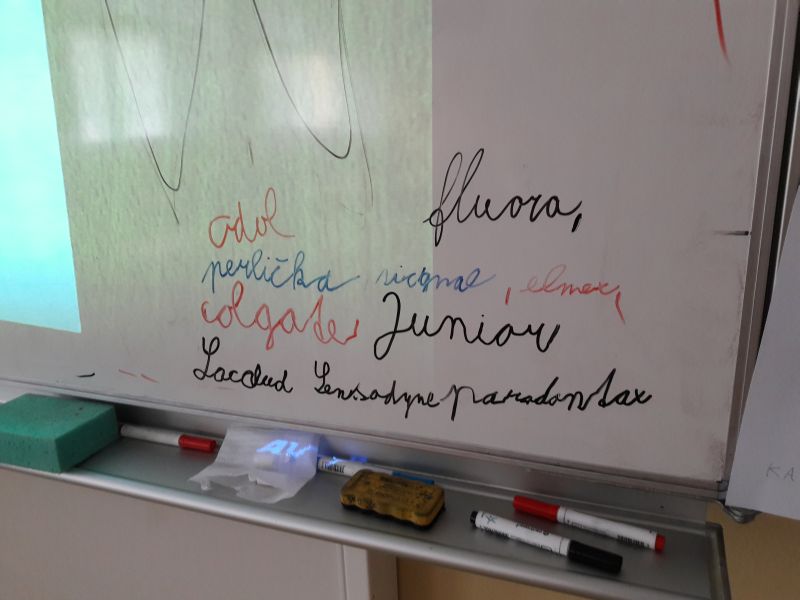 odol fluora,
perlička signal, elmex,
colgate Junior
Lacalud Sensodyne parodontax
KA